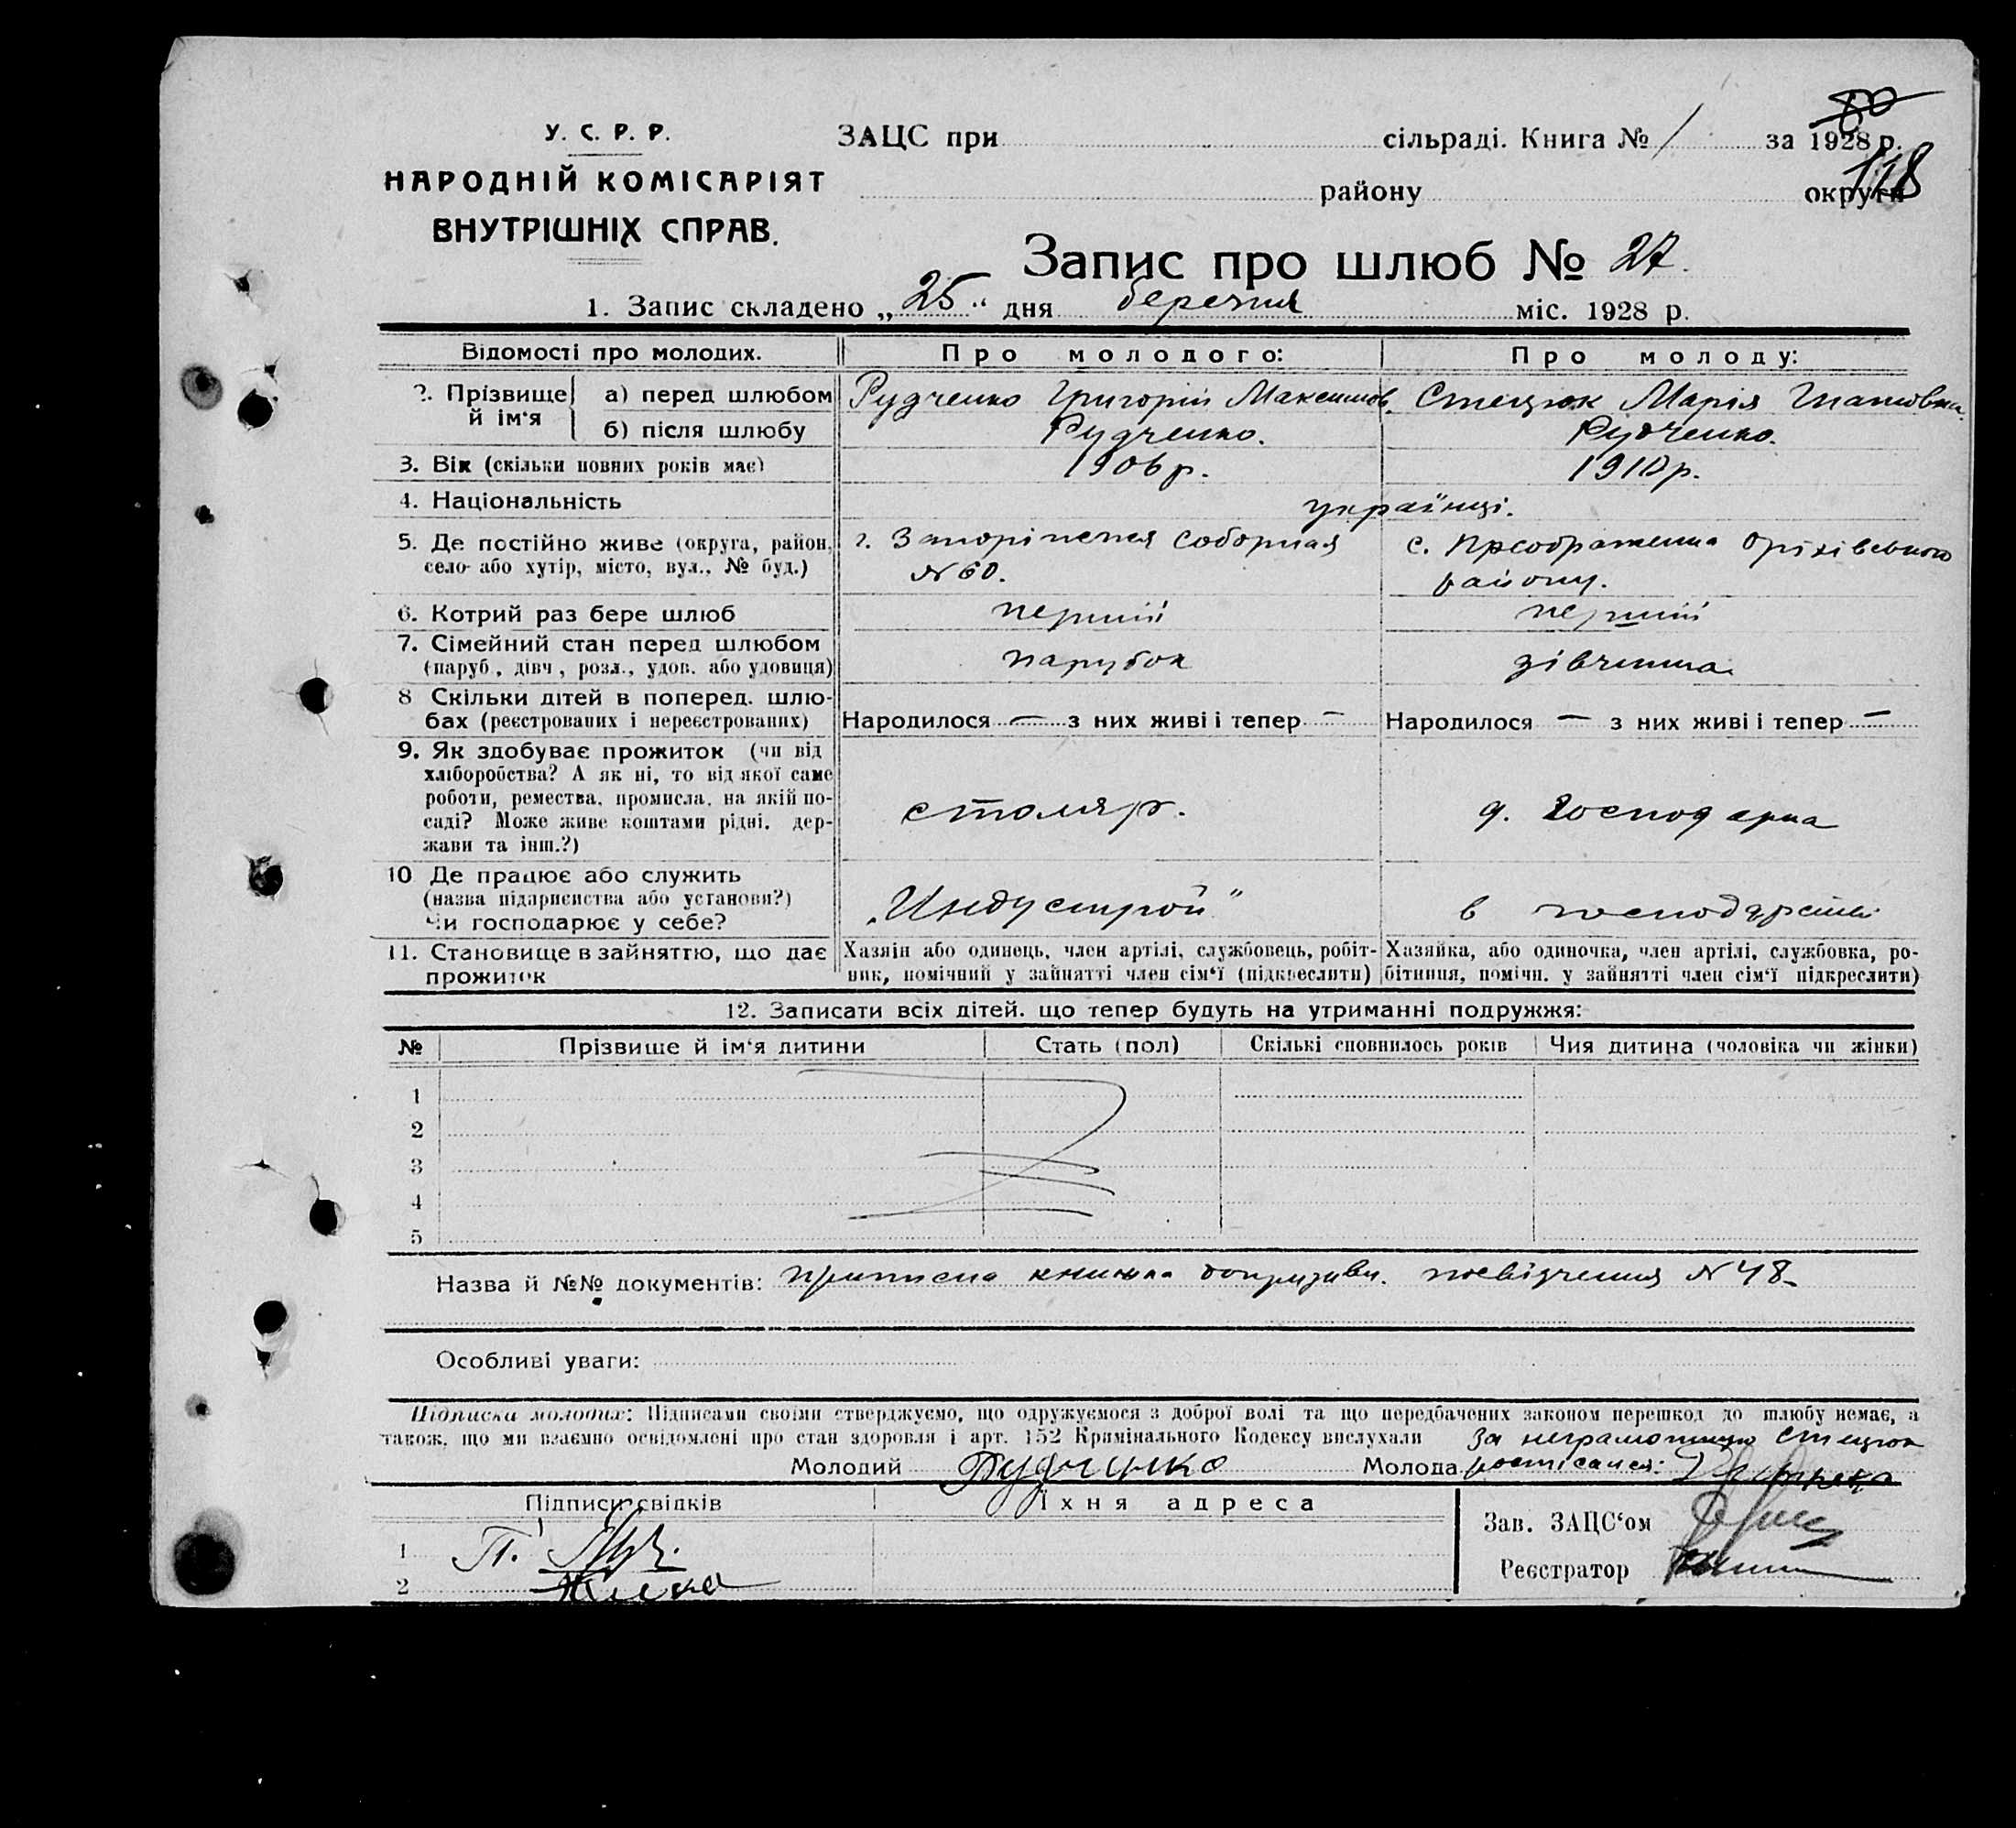 80
У. С. Р. Р.
НАРОДНІЙ КОМІСАРІЯТ
ВНУТРІШНІХ СПРАВ.
ЗАЦС при сільраді. Книга № 1 за 1928 р.
району округи
118
Запис про шлюб № 27.
1. Запис складено „25“ дня березня міс. 1928 р.
Відомості про молодих. Про молодого: Про молоду:
2. Прізвище й ім‘я
а) перед шлюбом Рудченко Григорій Максимов. Стецюк Марія
б) після шлюбу Рудченко. Рудченко.
3. Вік (скільки повних років має) 1906 р. 1910 р.
4. Національність українці.
5. Де постійно живе (округа, район, село або хутір, місто, вул., № буд.)
г. Запоріжжя Соборная
№ 60.
с. Преображенка Оріхівського
району.
6. Котрий раз бере шлюб перший перший
7. Сімейний стан перед шлюбом
(паруб., дівч., розл., удов. або удовиця) парубок дівчина
8 Скільки дітей в поперед. шлю-
бах (реєстрованих і нереєстрованих) Народилося — з них живі і тепер — Народилося — з них живі і тепер —
9. Як здобуває прожиток (чи від
хліборобства? А як ні, то від якої саме
роботи, ремества, промисла, на якій по-
саді? Може живе коштами рідні, дер-
жави та інш.?)
столяр. д. господарка
10 Де працює або служить
(назва підприємства або установи?)
Чи господарює у себе?
„Индустрой“ в господарстві
11. Становище в зайняттю, що дає
прожиток
Хазяїн або одинець, член артілі, службовець, робіт-
ник, помічний у зайнятті член сім‘ї (підкреслити)
Хазяйка, або одиночка, член артілі, службовка, ро-
бітниця, помічн. у зайнятті член сім‘ї підкреслити)
12. Записати всіх дітей, що тепер будуть на утриманні подружжя:
№ Прізвище й ім‘я дитини Стать (пол) Скількі сповнилось років Чия дитина (чоловіка чи жінки)
1
2
3
4
5
Назва й №№ документів: приписна книжка допризивн. посвідчення № 48
Особливі уваги:
Підписка молодих: Підписами своїми стверджуємо, що одружуємося з доброї волі та що передбачених законом перешкод до шлюбу немає, а
також, що ми взаємно освідомлені про стан здоровля і арт. 152 Крімінального Кодексу вислухали за неграмотную Стецюк
Молодий Рудченко Молода росписался:
Підписи свідків Їхня адреса
1 П.
2
Зав. ЗАЦС‘ом
Реєстратор